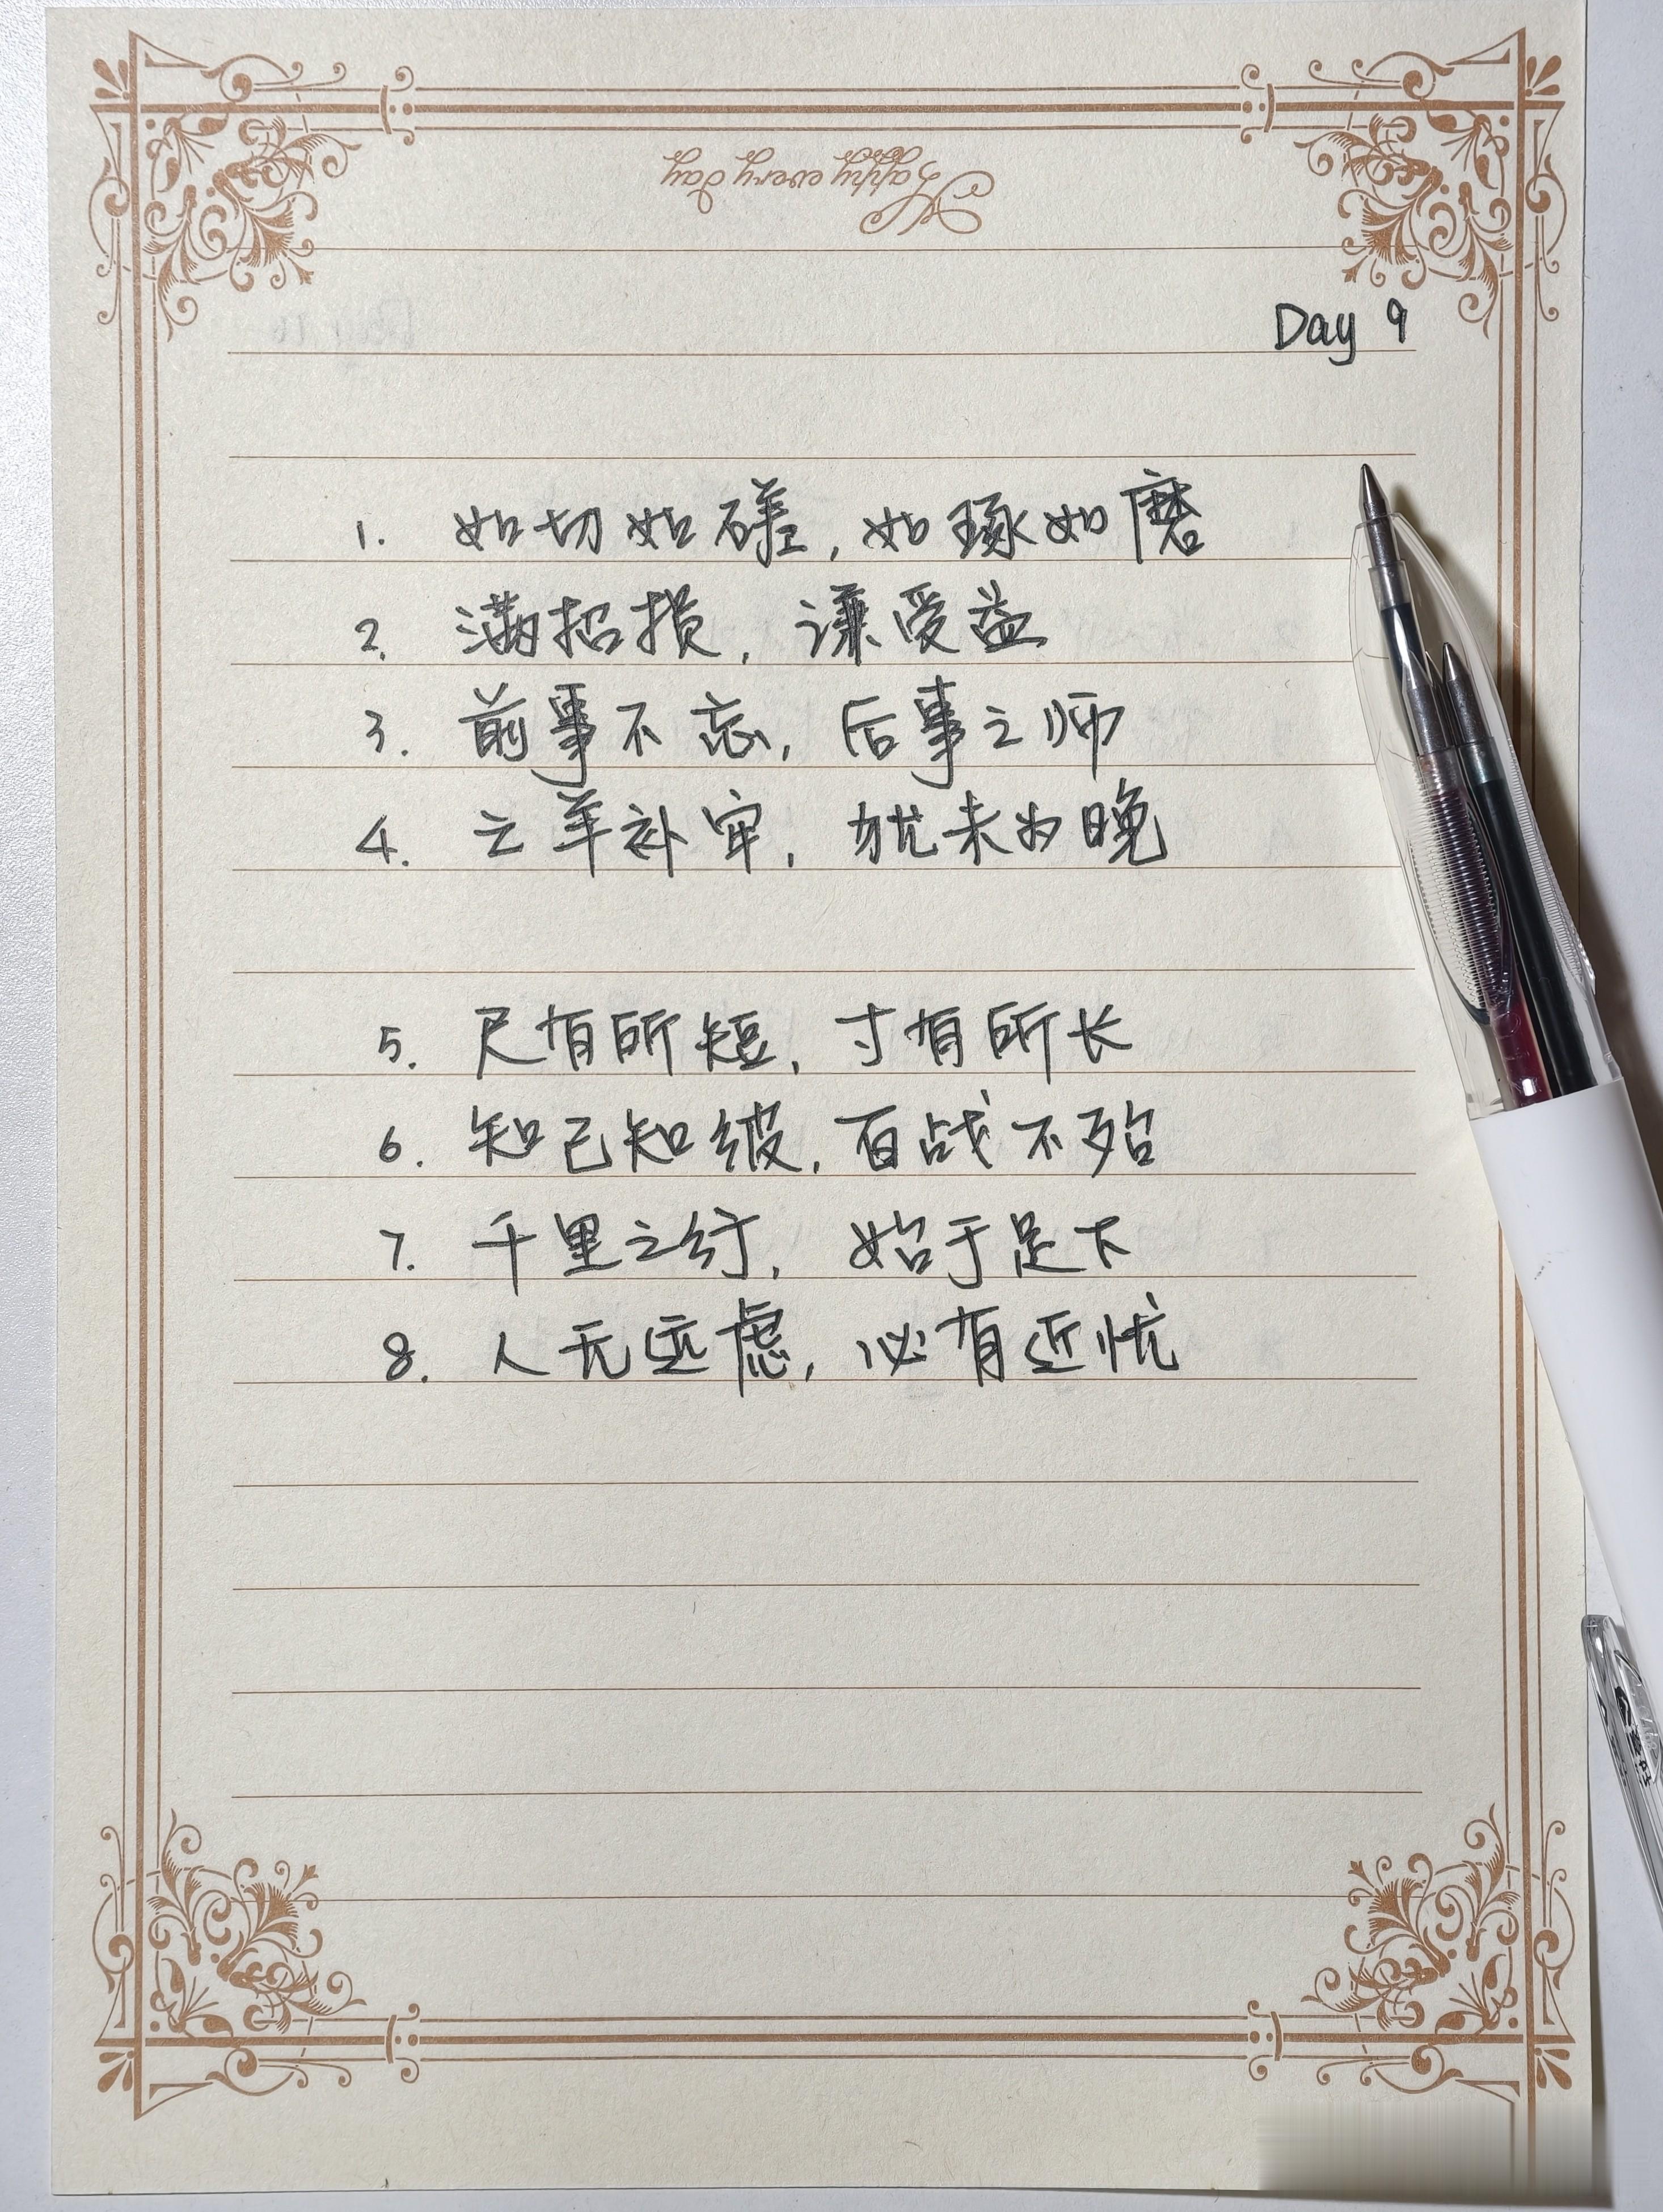 Happy every day
Day 9
1. 如切如磋,如琢如磨
2. 满招损,谦受益
3. 前事不忘,后事之师
4. 亡羊补牢,犹未为晚
5. 尺有所短,寸有所长
6. 知己知彼,百战不殆
7. 千里之行,始于足下
8. 人无远虑,必有近忧